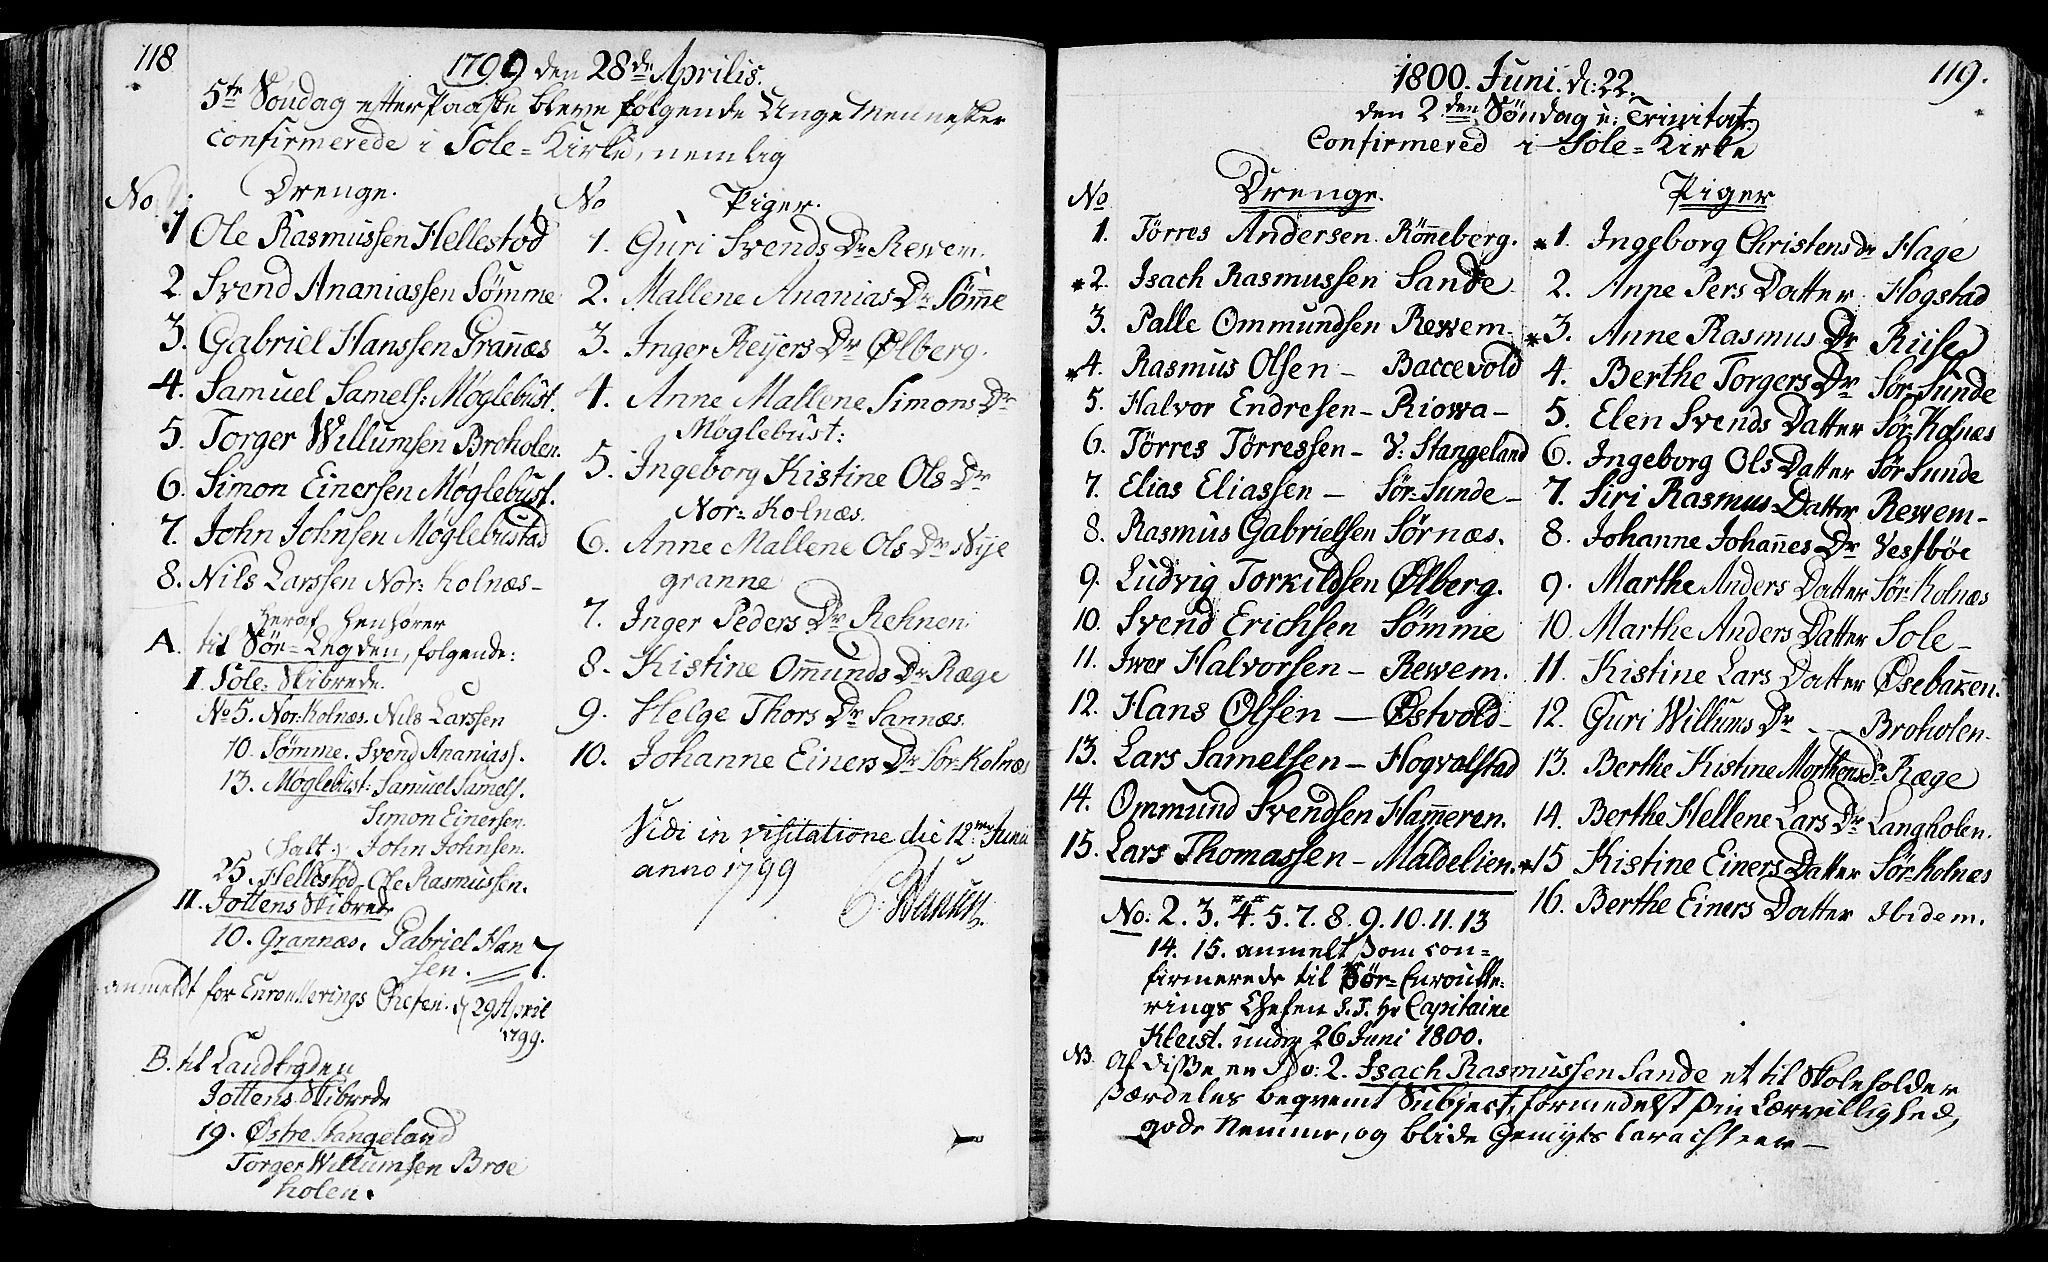 118
1799 den 28de Aprilis.
5te Søndag efter Paaske bleve følgende Unge Mennesker
Confirmerede i Sole-Kirke, nemlig
No Drenge.
1 Ole Rasmussen Hellestød
2 Svend Ananiassen Sømme
3. Gabriel Hanssen Gran̄æs
4. Samuel Samels: Møglebust.
5. Torger Willumsen Broholen.
6. Simon Einersen Møglebust.
7. John Johnsen Møglebustad
8. Nils Larssen Nor: Kolnæs-
heraf henhører
A. til Sør-Legden, følgende:
I. Sole-Skibrede.
No 5. Nor: Kolnæs. Nils Larssen
10. Sømme. Svend Ananiass.
13. Møglebust: Samuel Samels.
Simon Einersen.
John Johnsen.
25. Hellestød. Ole Rasmussen.
II. Jottens Skibrede
10. Grannæs. Gabriel Han
sen. 7.
anmeldt for Enroullerings Chefen. d 29 April
1799.
B. til Landlegden
Jottens Skibrede
19. Østre Stangeland
Torger Willumsen Broe
holen.
No Piger.
1. Guri Svends Dr Rewem.
2. Mallene Ananias Dr Søm̄e
3. Inger Reijers Dr Ølberg.
4. Anne Mallene Simons Dr
Møglebust:
5. Ingeborg Kistine Ols Dr
Nor: Kolnæs.
6. Anne Mallene Ols Dr Nye
granne
7. Inger Peders Dr Rehnen.
8. Kistine Om̄unds Dr Ræge
9. Helge Thors Dr Sannæs.
10. Johanne Einers Dr Sør-Kolnæs
Vidi in visitatione die 12me Junii
anno 1799
119.
1800. Juni. d: 22.
den 2den Søndag p: Trinitat.
Confirmered i Sole-Kirke
No Drenge.
1. Tørres Andersen. Rönneberg.
*2. Isach Rasmussen Sande
3. Palle Ommundsen Rewem-
*4. Rasmus Olsen - Baccevold
5. Halvor Endresen - Riowa -
6. Tørres Tørressen - V: Stangeland
7. Elias Eliassen - Sör-Sunde -
8. Rasmus Gabrielsen Sörnæs.
9. Ludvig Torkildsen Ølberg.
10. Svend Erichsen Sömme
11. Iwer Halvorsen - Rewem.
12. Hans Olsen - Østvold-
13. Lars Samelsen - Hogvalstad
14. Ommund Svendsen Ham̄eren.
15. Lars Thomassen - Maldelien.
No: 2. 3. 4. 5. 7. 8. 9. 10. 11. 13
14. 15. anmelt som con-
firmerede til Sör-Enroulle-
rings Chefen S. T. Hr Capitaine
Kleist. under 26 Juni 1800.
Piger
*1. Ingeborg Christens Dr Hage
2. Anne Pers Datter Hogstad
*3. Anne Rasmus Dr Riise
4. Berthe Torgers Dr Sör-Sunde
5. Elen Svends Datter Sör-Kolnæs
6. Ingeborg Ols Datter Sör Sunde
7. Siri Rasmus Datter Rewem-
8. Johanne Johan̄es Dr Vestböe
9. Marthe Anders Datter Sör-Kolnæs
10. Marthe Anders Datter Sole-
11. Kistine Lars Datter Øsebakken.
12. Guri Willums Dr - - Broholen-
13. Berthe Kistine Morthens Dr Ræge
14. Berthe Hellene Lars Dr Langholen.
*15 Kistine Einers Datter Sör-Kolnæs
16. Berthe Einers Datter Ibidem.
NB. Af disse er No: 2. Isach Rasmussen Sande et til Skoleholder
særdeles beqvemt Subject, formedelst sin Lærvillighed,
gode Nemme, og blide Gemyts Carachteer -